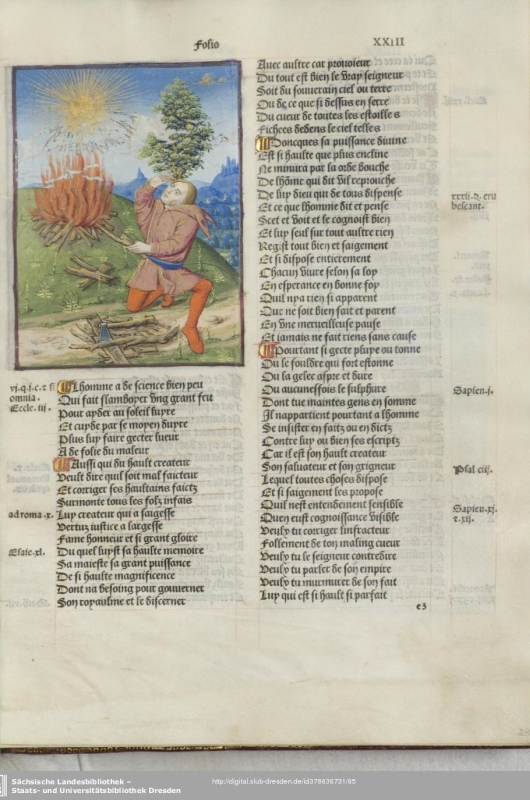 Folio
XXiii
vj.q.j.c. r si
omnia.
Eccle. iij.
ad roma .x.
Esaie.xl.
Lhomme a de science bien peu
Qui fait flamboyer vng grant feu
Pour ayder au soleil luyre
Et cuyde par se moyen duyre
Plus luy faire gecter lueur
A de folie du maleur
Aussi qui du hault createur
Veult dire quil soit mal faicteur
Et corriger ses haultains faictz
Surmonte tous les folz infais
Luy createur qui a saigesse
Vertuz iustice a largesse
Fame honneur et si grant gloire
Du quel luyst sa haulte memoire
Sa maieste sa grant puissance
De si haulte magnificence
Dont na besoing pour gouuerner
Son royaulme et le discerner
Auec aultre car prouoieur
Du tout est bien le vray seigneur
Soit du souuerain ciel ou terre
Ou de ce que si dessus en serre
Du cueur de toutes les estoilles
Fichees dedens le ciel telles
Doncques sa puissance diuine
Est si haulte que plus encline
Ne minura par la orde bouche
De lhomme qui dit vil reprouche
De luy dieu qui de tous dispense
Et ce que lhomme dit et pense
Scet et voit et le cognoist bien
Et luy seul sur tout aultre rien
Regist tout bien et saigement
Et si dispose entierement
Chacun viure selon sa loy
En esperance en bonne foy
Quil nya rien si apparent
Que ne soit bien fait et parent
En vne merueilleuse pause
Et iamais ne fait riens sans cause
Pourtant si gecte pluye ou tonne
Ou le fouldre qui fort estonne
Ou la gelee aspre et dure
Ou aucuneffois le sulphure
Dont tue maintes gens en somme
Il nappartient pourtant a lhomme
Se insister en faitz ou en dictz
Contre luy ou bien ses escriptz
Car il est son hault createur
Son saluateur et son grigneur
Lequel toutes choses dispose
Et si saigement les propose
Quil nest entendement sensible
Quen eust cognoissance visible
Veulx tu corriger linfracteur
Follement de ton maling cueur
Veulx tu le seigneur contredire
Veulx tu parler de son empire
Veulx tu murmurer de son fait
Luy qui est si hault si parfait
e3
xxxii. d. eru
bescant.
Sapien.j.
Psal ciij.
Sapien.xj.
r.xij.
Sächsische Landesbibliothek –
Staats- und Universitätsbibliothek Dresden
http://digital.slub-dresden.de/id378636731/65